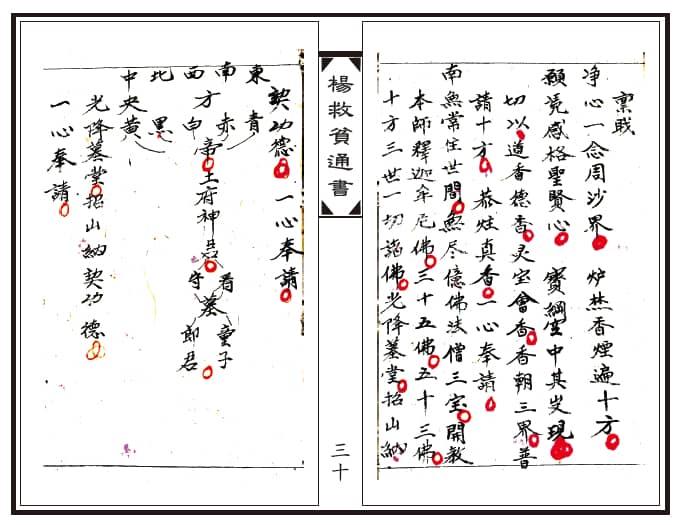 稟
净心一念周沙界 炉焚香煙遍十方
願凭感格聖賢心 寳網空中其叐現
切以道香德香灵宝會香香朝三界普
請十方 恭炷真香一心奉請
南無常住世間無尽億佛法僧三宝開教
本師釋迦牟尼佛三十五佛五十三佛
十方三世一切諸佛光降墓堂招山納
楊救貧通書
三十
契功德 一心奉請
東 青
南 赤
西方白帝土府神君 看守墓童子郎君
北 黑
中央黄
光降墓堂招山納契功德
一心奉請